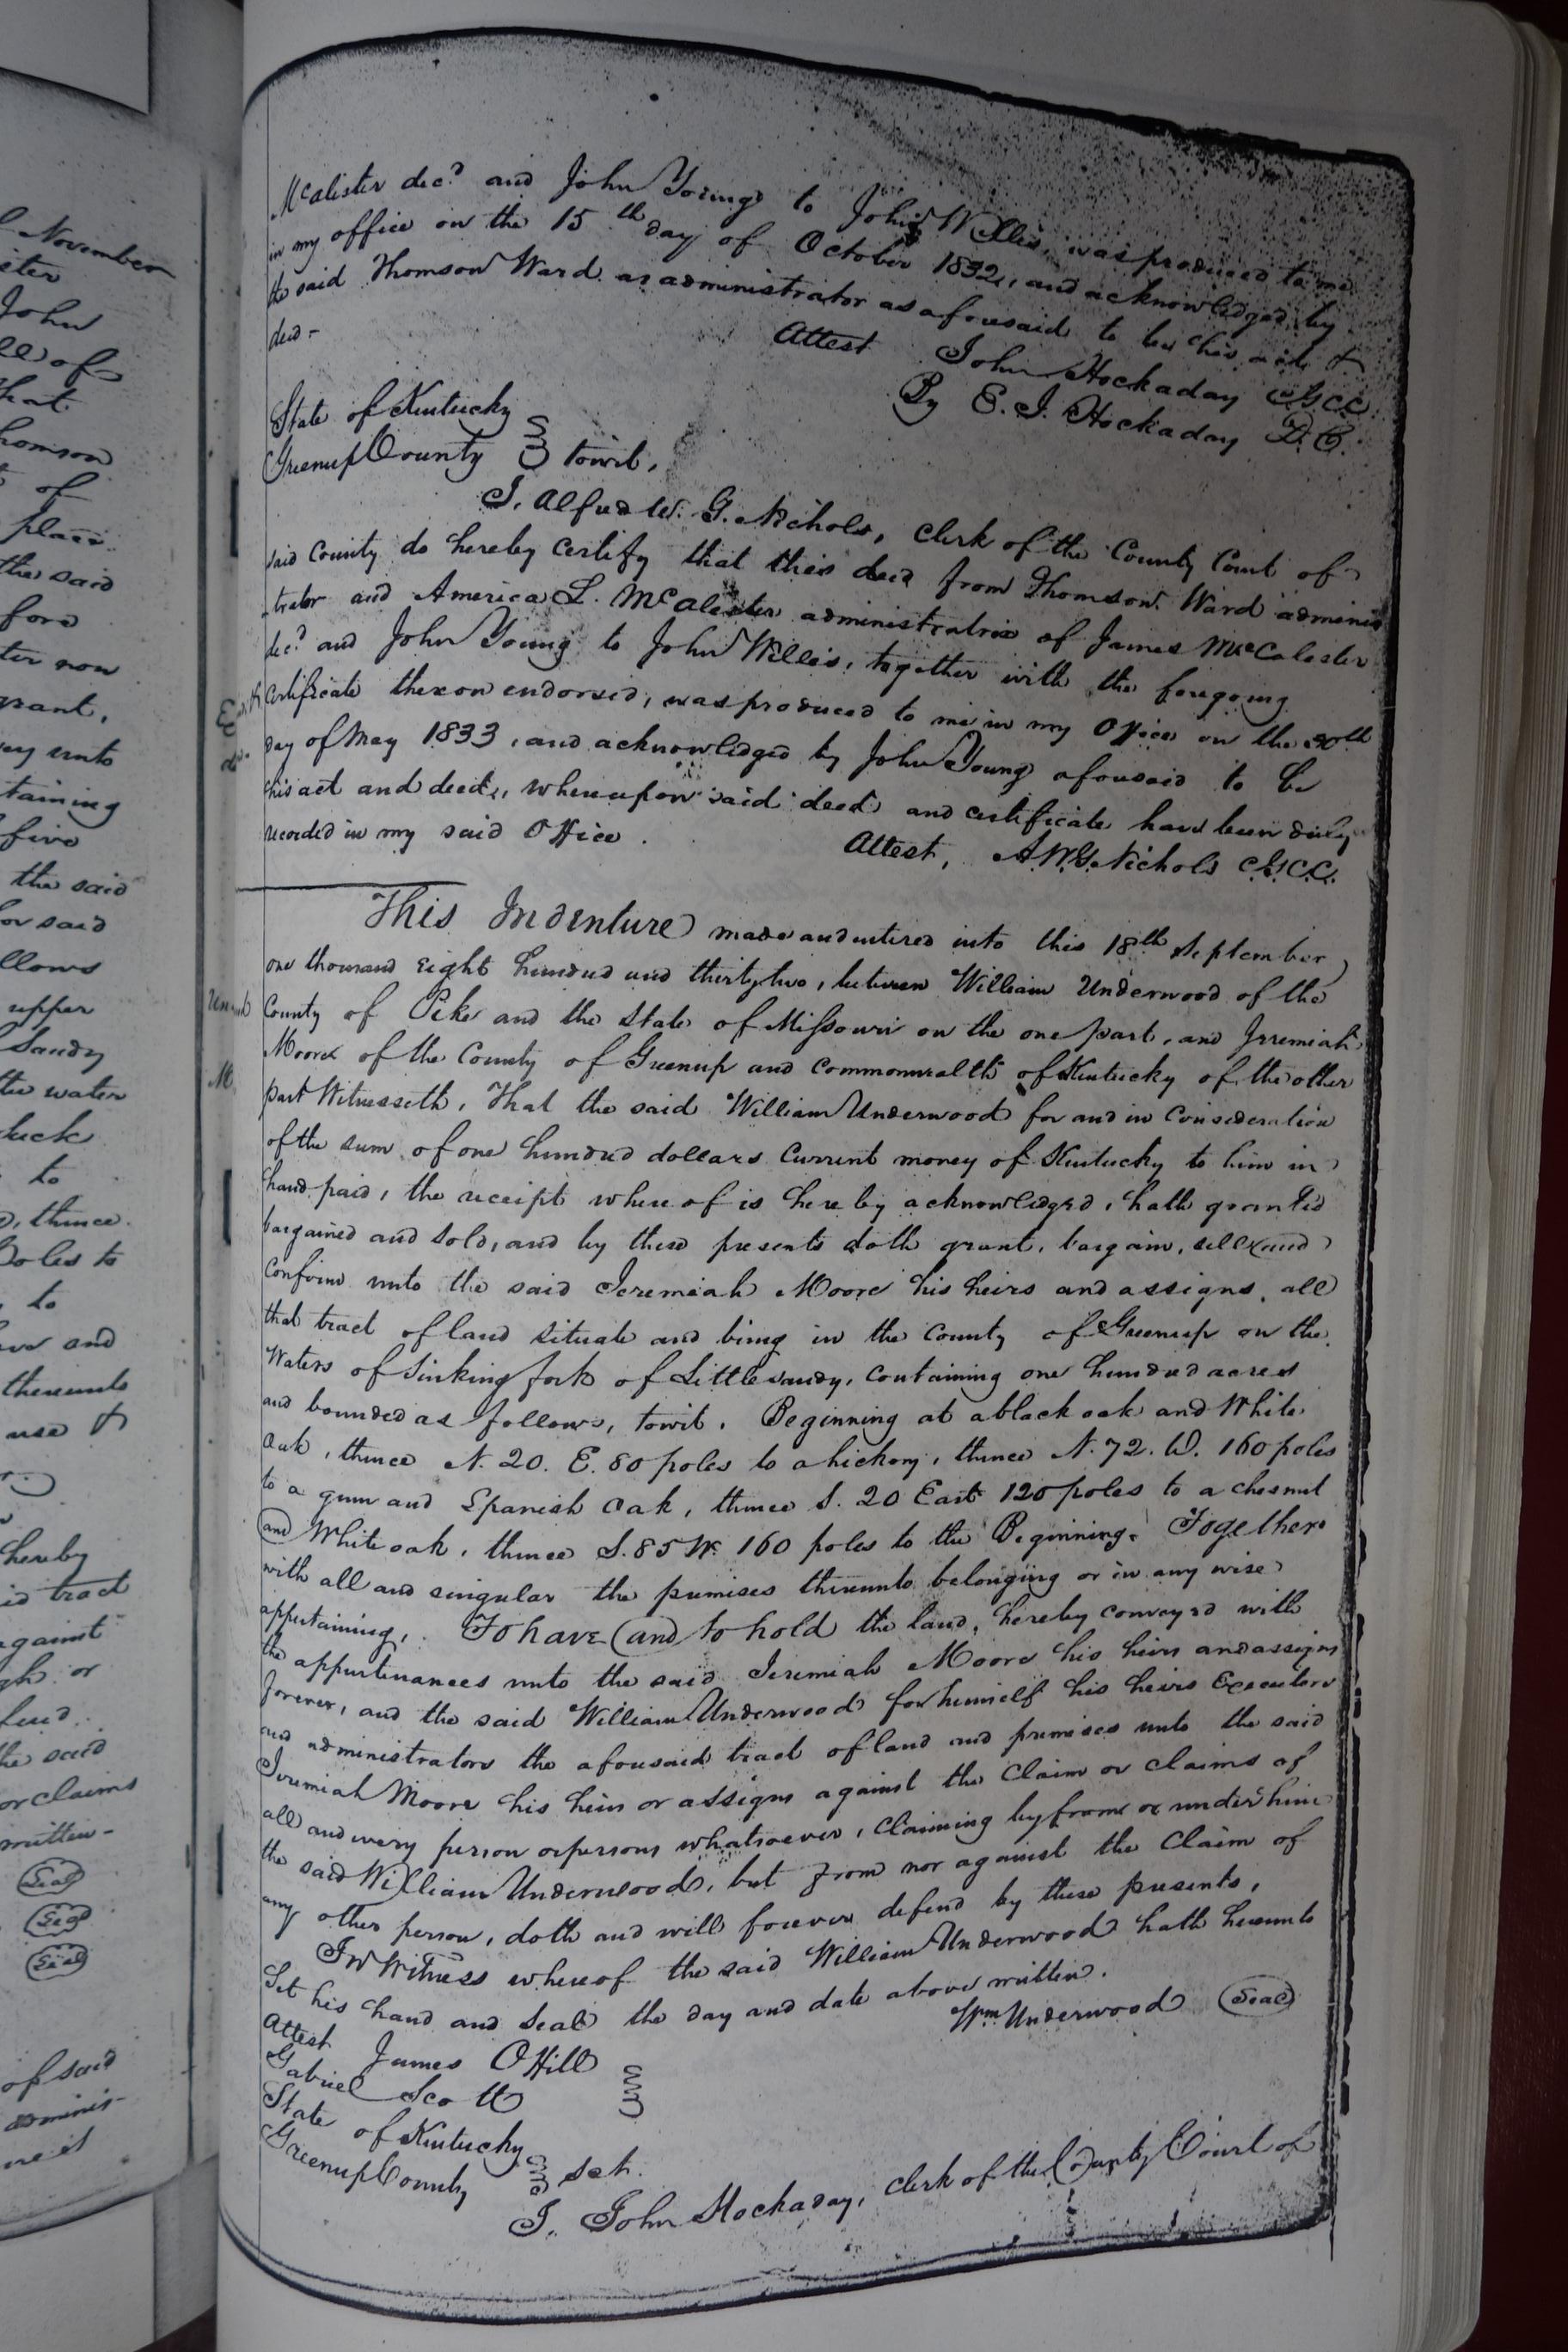 McAlister decd and John Young to John Willis, was produced to me
in my office on the 15th day of October 1832, and acknowledged by
the said Thomson Ward as administrator as aforesaid to be his act &
deed-
Attest John Hockaday C.G.C.C.
By E. I. Hockaday D.C.
State of Kentucky
Greenup County towit,
I, Alfred W. G. Nichols, Clerk of the County Court of
said County do hereby Certify that this deed from Thomson Ward adminis
-trator and America L. McAlester administratrix of James McCalester
decd and John Young to John Willis, together with the foregoing
Certificate thereon endorsed, was produced to me in my Office on the 30th
day of May 1833, and acknowledged by John Young aforesaid to be
his act and deed, whereupon said deed and certificate have been duly
recorded in my said Office.
Attest, A.W.G. Nichols C.G.C.C.
This Indenture made and entered into this 18th September
one thousand eight hundred and thirty two, between William Underwood of the
County of Pike and the State of Missouri on the one part, and Jeremiah
Moore of the County of Greenup and commonwealth of Kentucky of the other
part Witnesseth, That the said William Underwood for and in Consideration
of the sum of one hundred dollars Current money of Kentucky to him in
hand paid, the receipt where of is here by acknowledged, hath granted
bargained and sold, and by these presents doth grant, bargain, sell and
confirm unto the said Jeremiah Moore his heirs and assigns, all
that tract of land situate and being in the County of Greenup on the
Waters of Sinking fork of Little sandy, containing one hundred acres
and bounded as follows, towit. Beginning at a black oak and White
Oak, thence N. 20. E. 80 poles to a hickory, thence N. 72. W. 160 poles
to a gum and Spanish Oak, thence S. 20 East 120 poles to a chesnut
and White oak, thence S. 85 W. 160 poles to the Beginning. Together
with all and singular the premises thereunto belonging or in any wise
appertaining, To have and to hold the land, hereby conveyed with
the appurtenances unto the said Jeremiah Moore his heirs and assigns
forever, and the said William Underwood for himself his heirs Executors
and administrators the aforesaid tract of land and premises unto the said
Jeremiah Moore his heirs or assigns against the Claim or Claims of
all and every person or persons whatsoever, Claiming by from or under him
the said William Underwood, but from nor against the Claim of
any other person, doth and will forever defend by these presents,
In Witness whereof the said William Underwood hath hereunto
Set his hand and Seal the day and date above written.
Wm Underwood Seal
Attest James O Hill
Gabriel Scott
State of Kentucky
Greenup County sct.
I, John Hockaday, Clerk of the County Court of